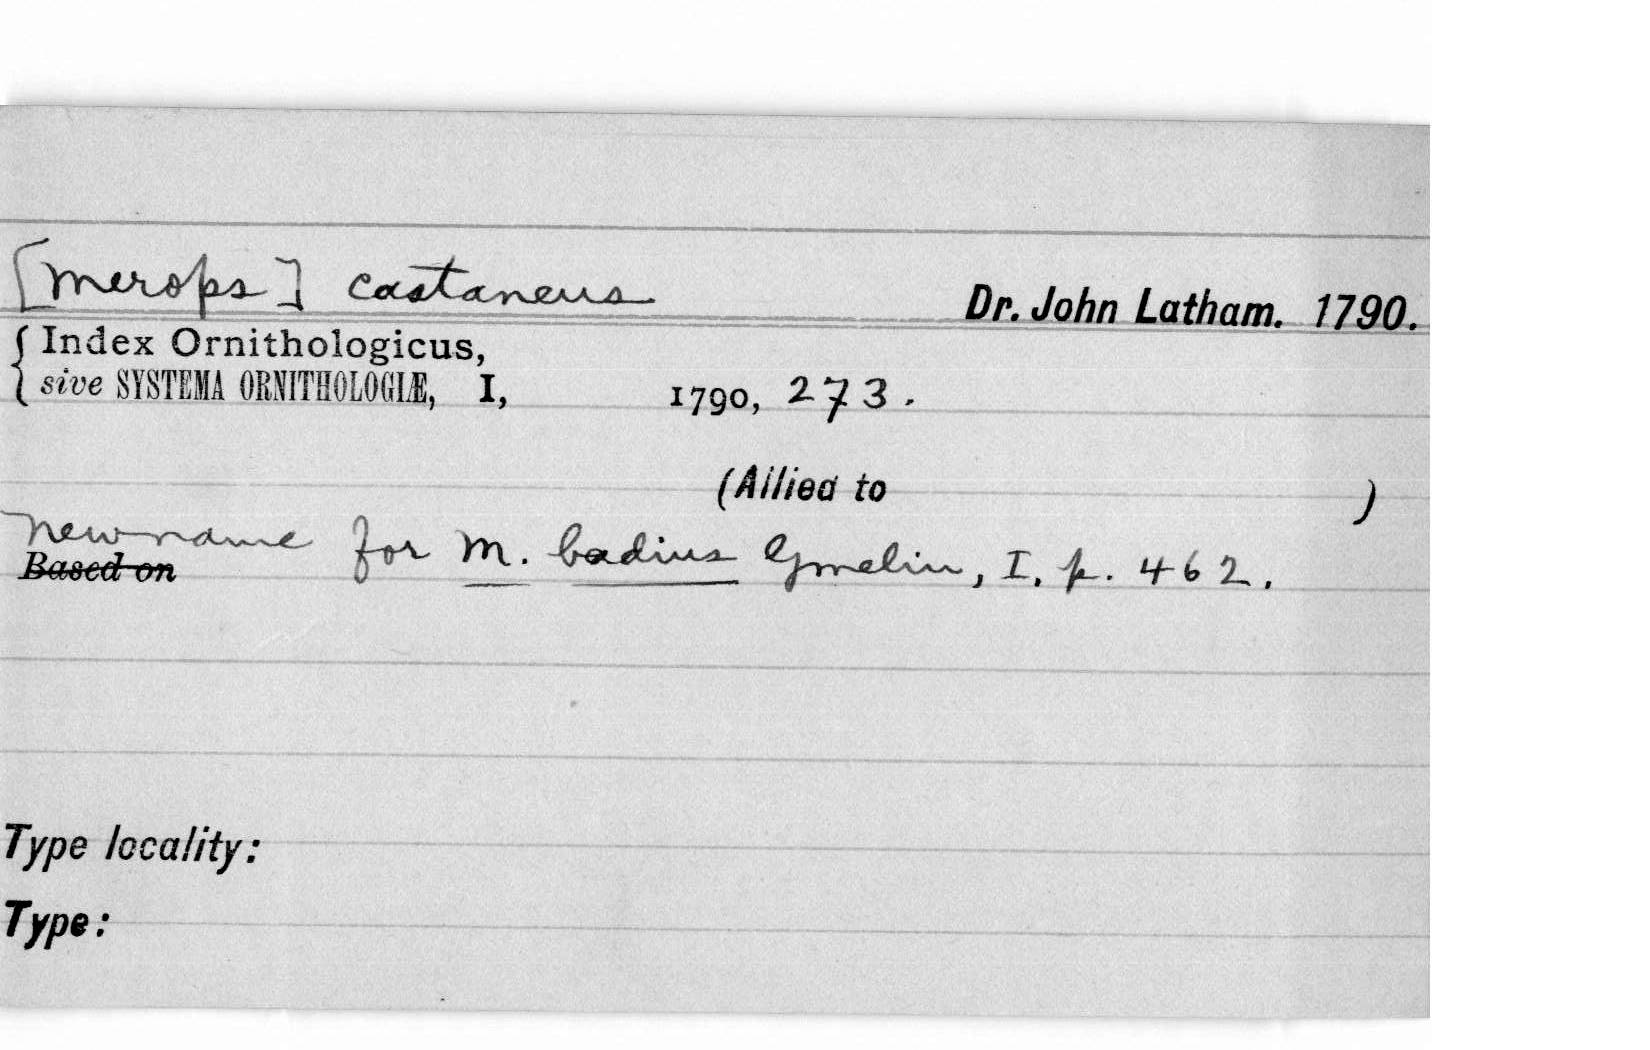 [Merops] castaneus Dr. John Latham. 1790.
{ Index Ornithologicus,
sive SYSTEMA ORNITHOLOGIÆ, I, 1790, 273.
(Allied to )
New name for M. badius Gmelin, I. p. 462.
Based on
Type locality:
Type: